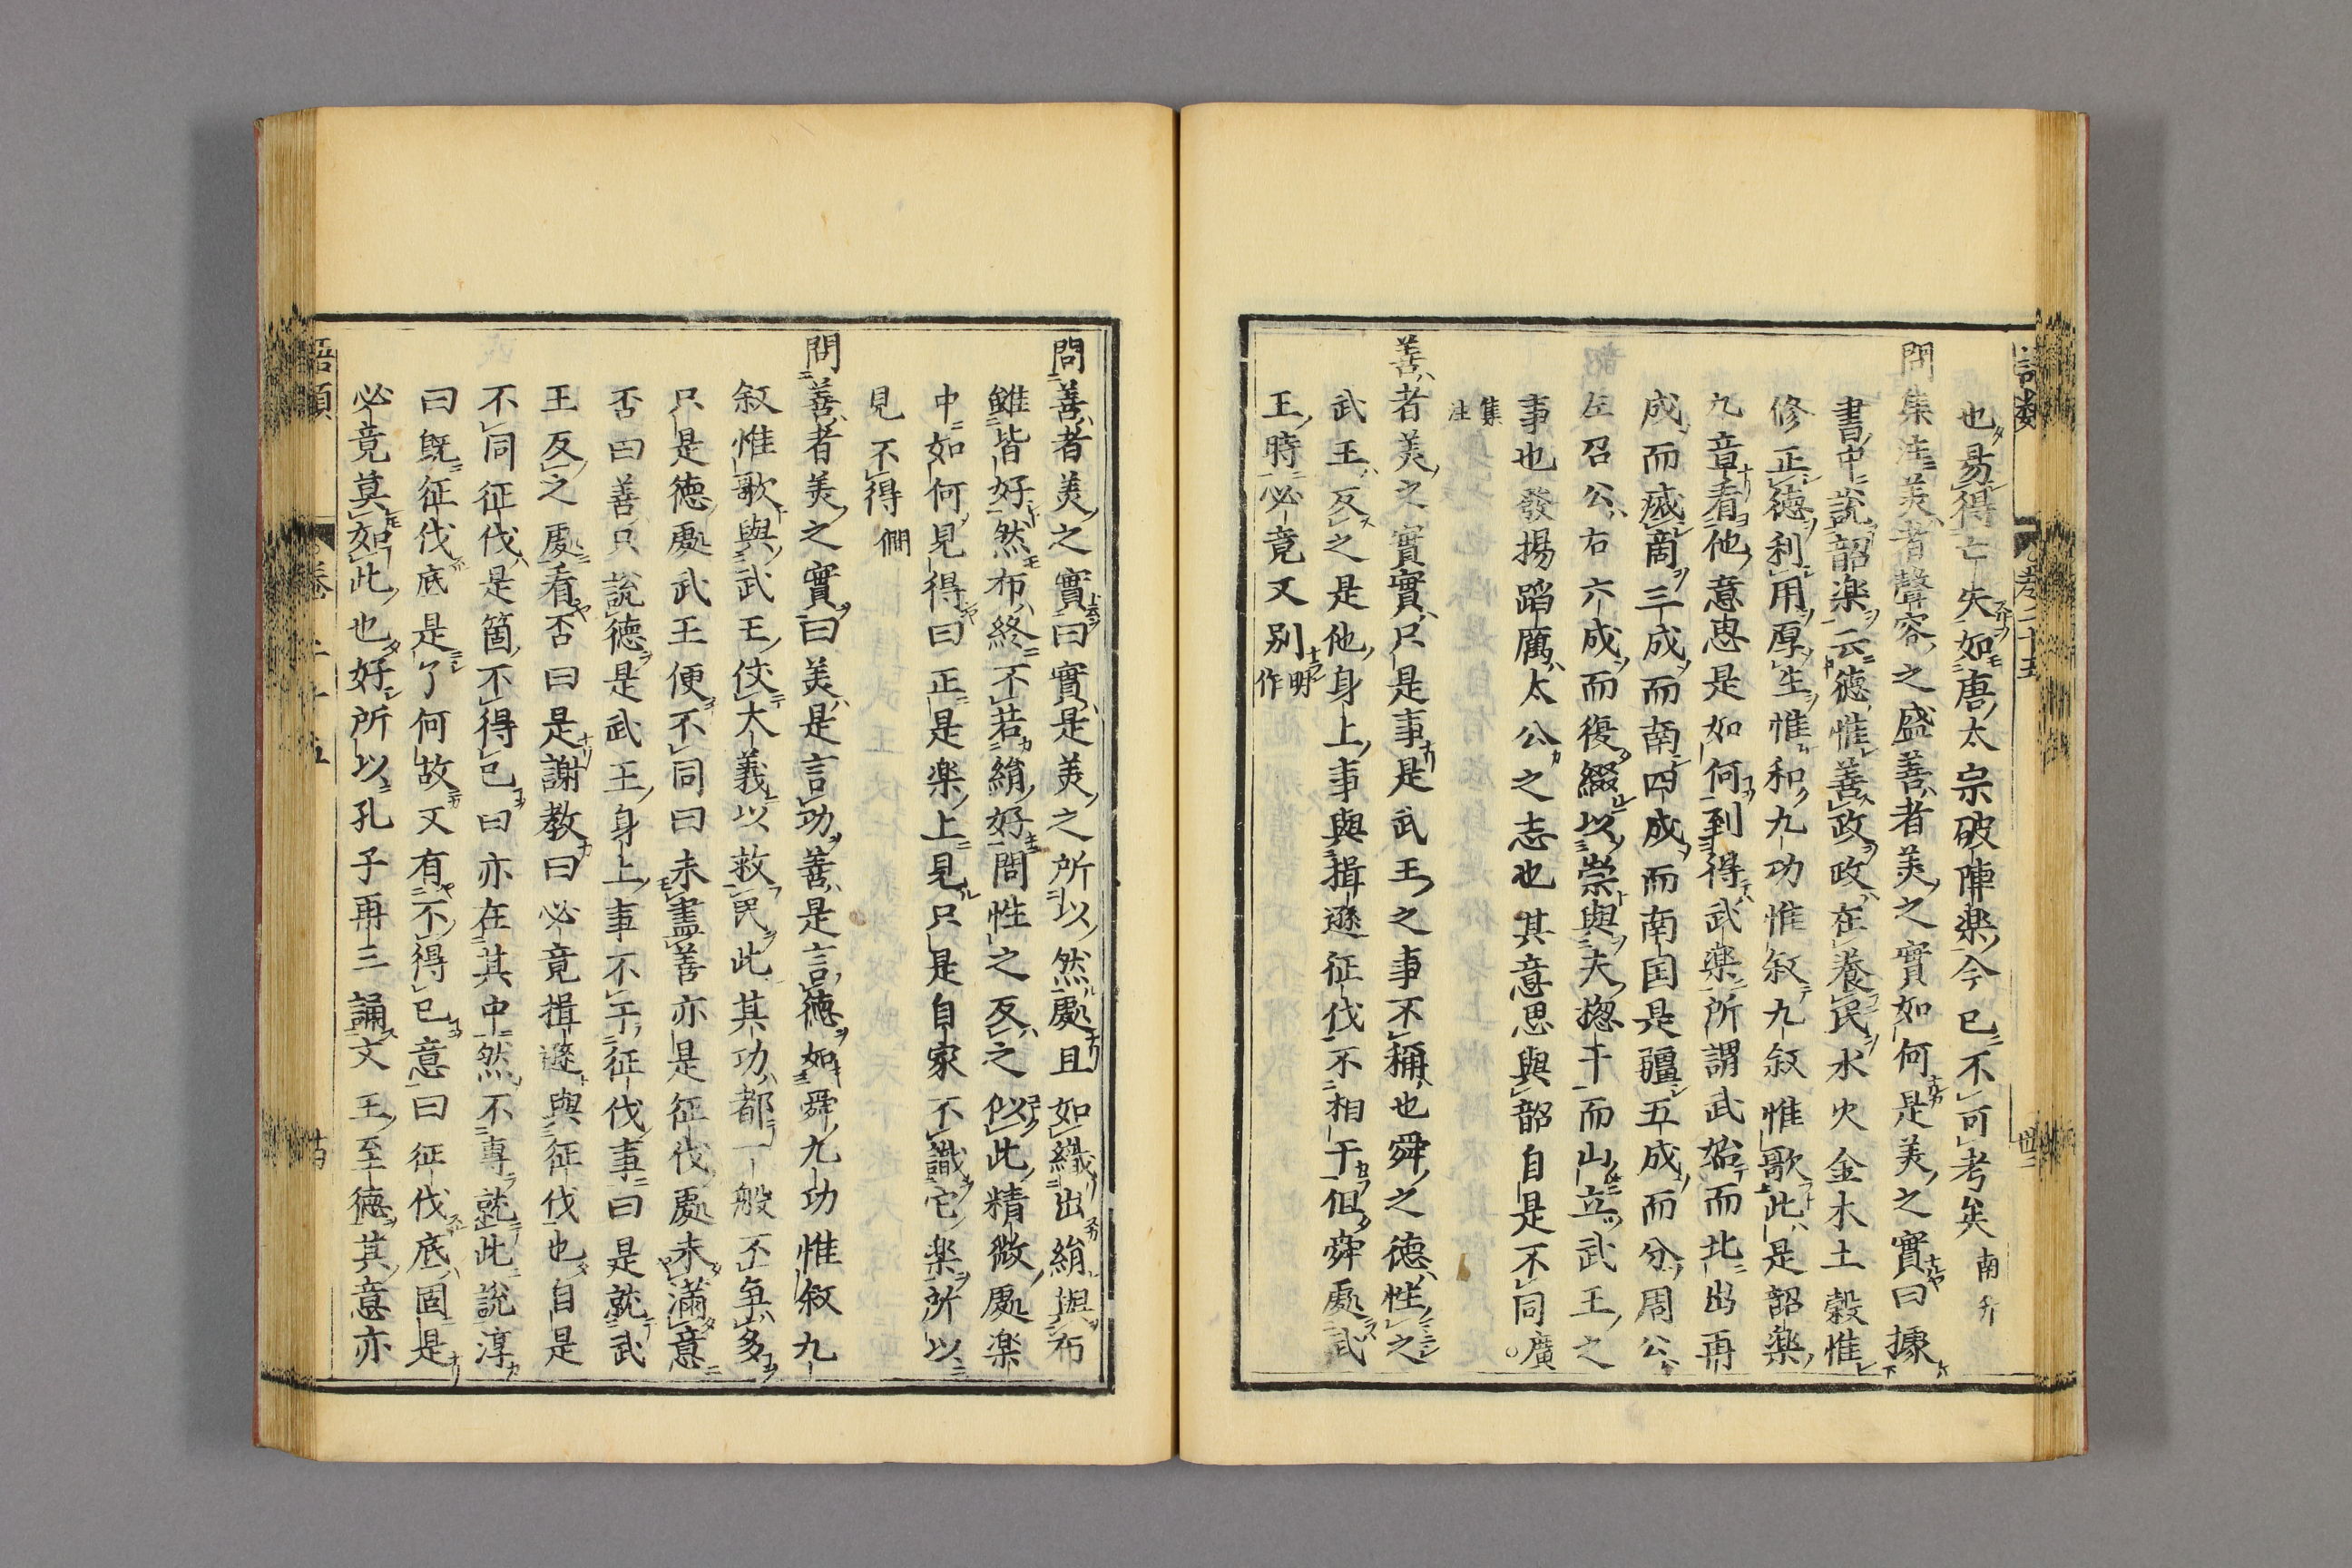 也易得亡失如唐太宗破陣楽今已不可考矣 南升
問集注美者聲容之盛善者美之實如何是美之實曰據
書中説韶楽云德惟善政政在養民水火金木土穀惟
修正德利用厚生惟和九功惟叙九叙惟歌此是韶楽
九章看他意思是如何到得武楽所謂武始而北出再
成而滅商三成而南四成而南国是疆五成而分周公
左召公右六成而復綴以崇與夫揔干而山立武王之
事也發揚蹈厲太公之志也其意思與韶自是不同 廣
集注
善者美之實實只是事是武王之事不稱也舜之德性之
武王反之是他身上事與揖遜征伐不相干但舜處武
王時必竟又别 明作
問善者美之實曰實是美之所以然處且如織出絹與布
雖皆好然布終不若絹好問性之反之似此精微處楽
中如何見得曰正是楽上見只是自家不識它楽所以
見不得 僩
問善者美之實曰美是言功善是言德如舜九功惟叙九
叙惟歌與武王仗大義以救民此其功都一般不争多
只是德處武王便不同曰未盡善亦是征伐處未滿意
否曰善只説德是武王身上事不干征伐事曰是就武
王反之處看否曰是謝教曰必竟揖遜與征伐也自是
不同征伐是箇不得已曰亦在其中然不專就此説淳
曰既征伐底是了何故又有不得已意曰征伐底固是
必竟莫如此也好所以孔子再三誦文王至德其意亦
語類
卷二十五